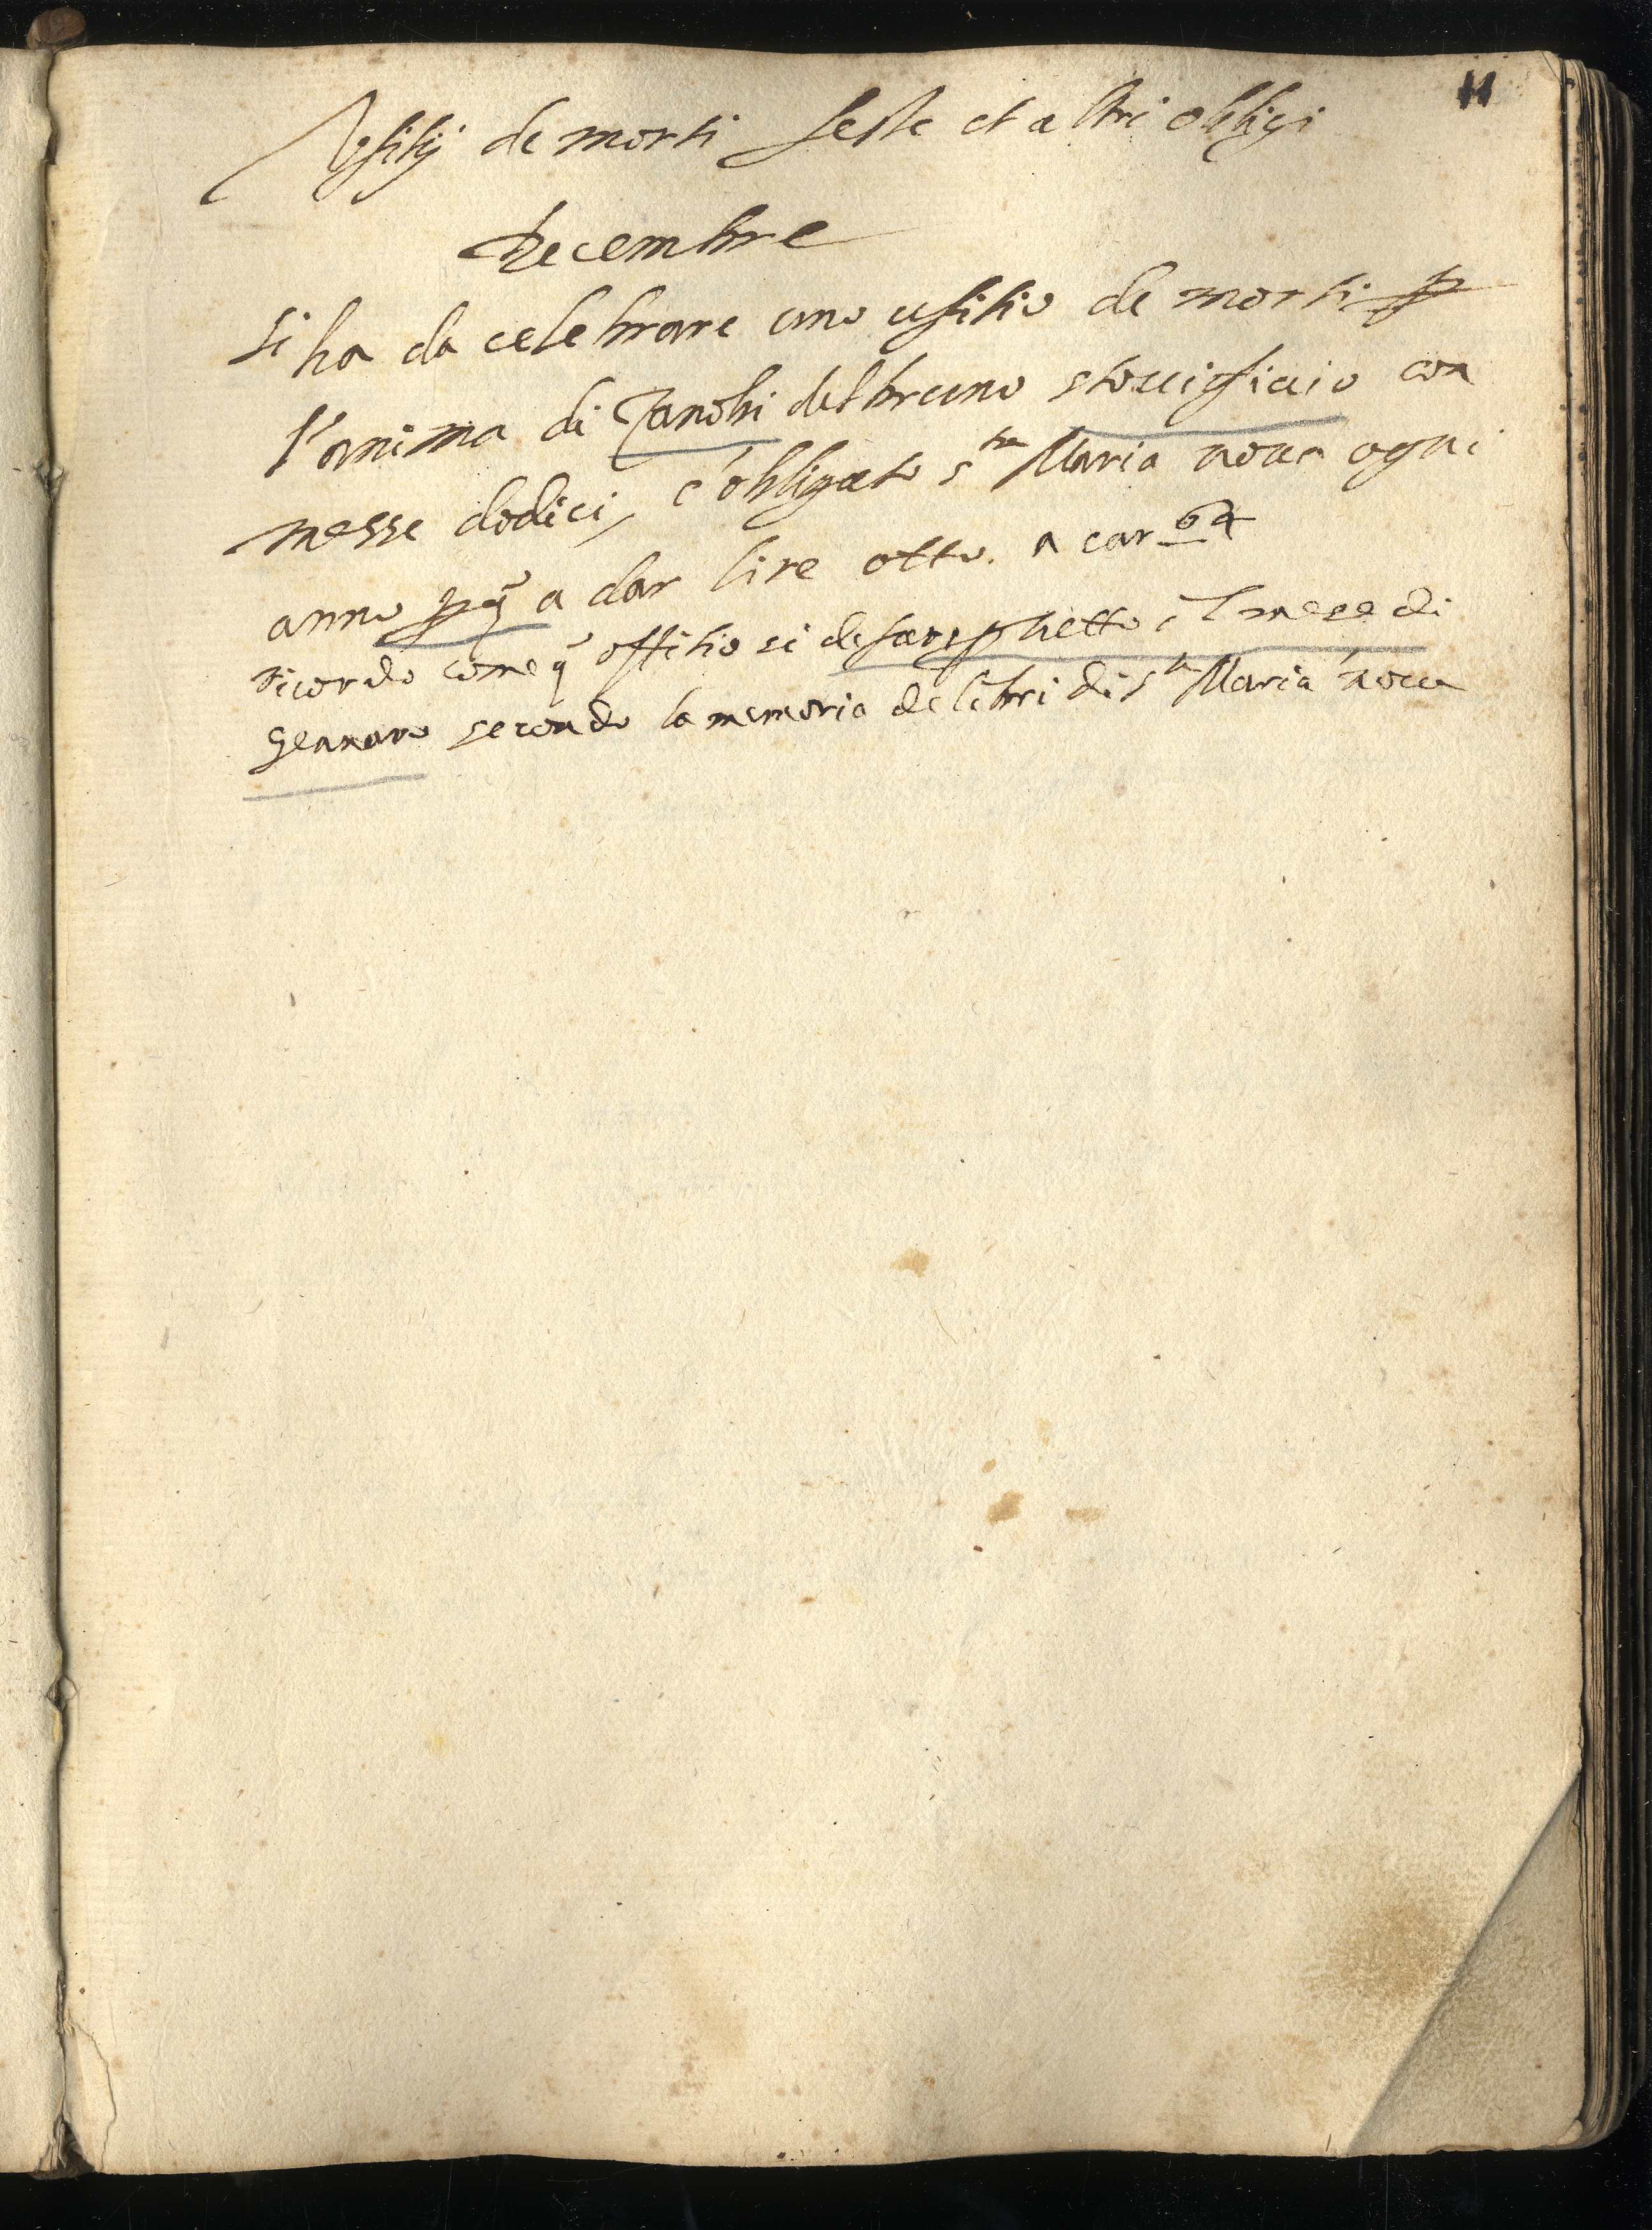 11
Vfitij de morti feste et altri oblligi
Decembre
si ha da celebrare uno ufitio de morti p
l'anima di Zanobi del bruno stovigliaio con
messe dodici, è obligato sta Maria noua ogni
anno p q a dar lire otto. a car 64
ricordo come q offitio si de far p detto il mese di
Gennaro secondo la memoria de libri di sta Maria noua